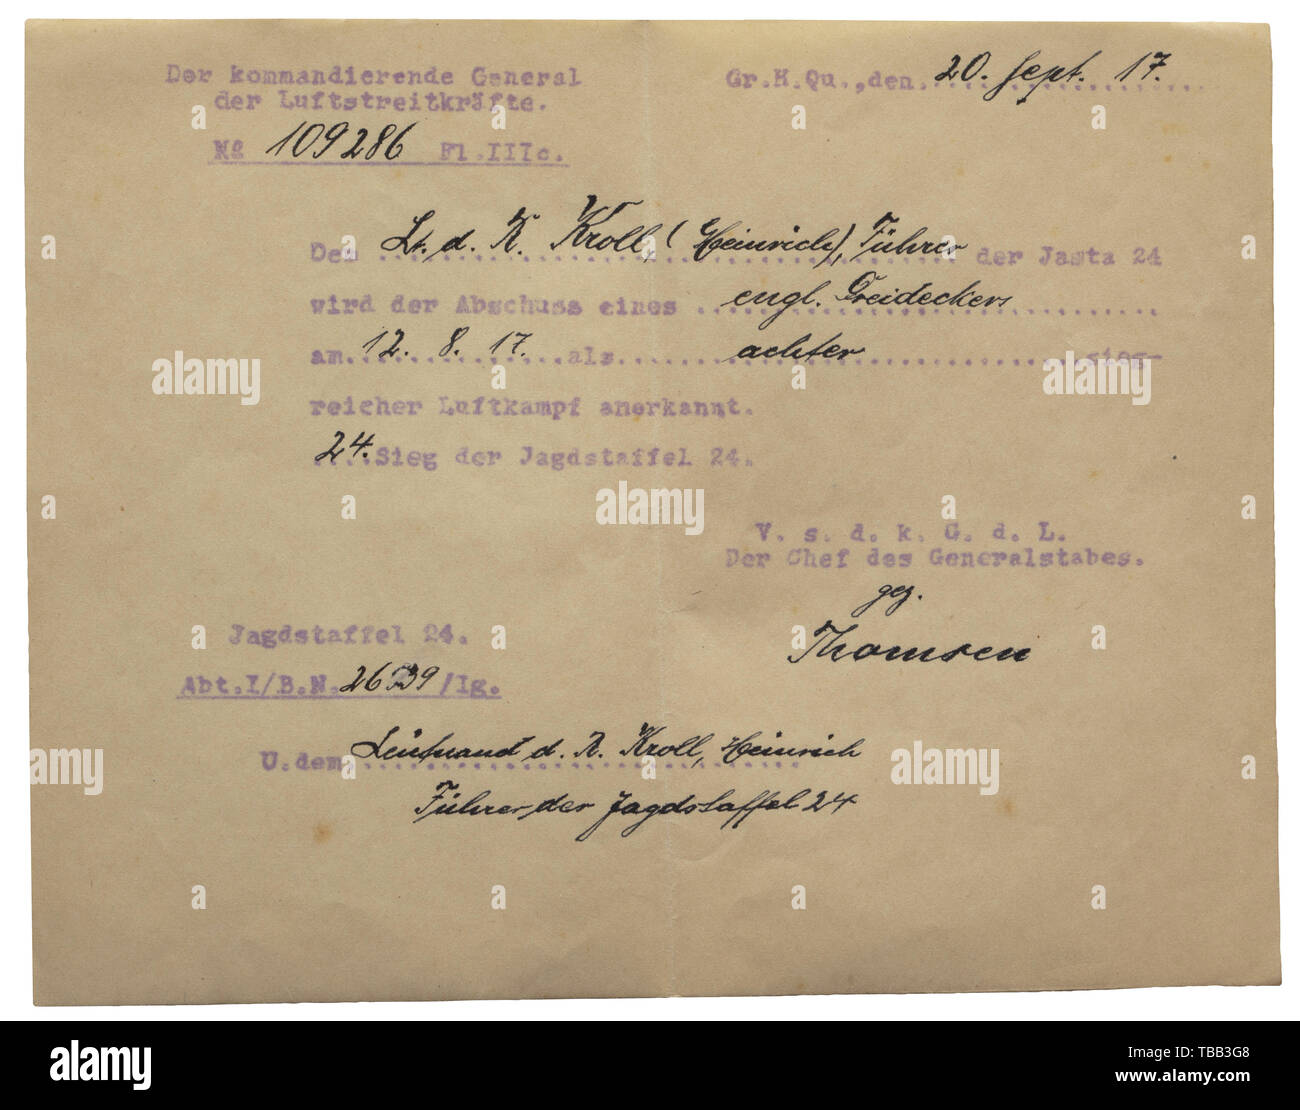 Der kommandierende General
der Luftstreitkräfte.
Gr.H.Qu.,den. 20. Sept. 17.
No 109286 Fl.IIIc.
Dem Lt. d. R. Kroll, (Heinrich), Führer der Jasta 24
wird der Abschuss eines engl. Dreideckers
am 12. 8. 17. als achter sieg-
reicher Luftkampf anerkannt.
24. Sieg der Jagdstaffel 24.
V. s. d. k. G. d. L.
Der Chef des Generalstabes.
gez.
Thomsen
Jagdstaffel 24.
Abt.I/B.N. /Ig.
U.dem Leutnant d. R. Kroll, Heinrich
Führer der Jagdstaffel 24
alamy
Image ID: TBB3G8
www.alamy.com